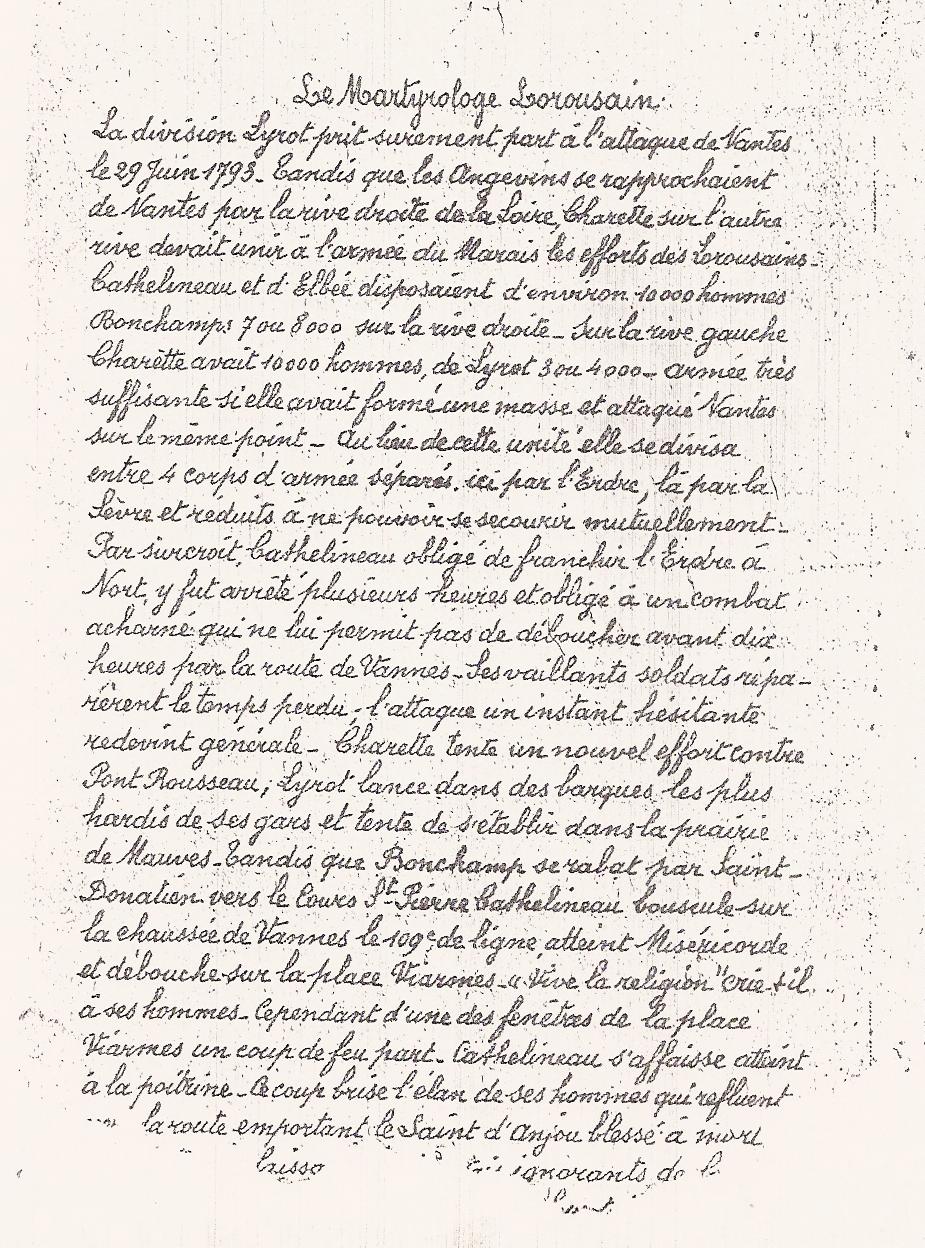 Le Martyrologe Lorousain.
La division Lyrot prit surement part à l'attaque de Nantes
le 29 Juin 1793 - Tandis que les Angevins se rapprochaient
de Nantes par la rive droite de la Loire, Charette sur l'autre
rive devait unir à l'armée du Marais les efforts des Lorousains -
Cathelineau et d'Elbée disposaient d'environ 10000 hommes
Bonchamps 7 ou 8000 sur la rive droite - Sur la rive gauche
Charette avait 10000 hommes, de Lyrot 3 ou 4000 - armée très
suffisante si elle avait formé une masse et attaqué Nantes
sur le même point - Au lieu de cette unité elle se divisa
entre 4 corps d'armée séparés. ici par l'Erdre, là par la
Sèvre et reduits à ne pouvoir se secourir mutuellement -
Par surcroit, Cathelineau obligé de franchir l'Erdre à
Nort, y fut arrêté plusieurs heures et obligé à un combat
acharné qui ne lui permit pas de déboucher avant dix
heures par la route de Vannes - Ses vaillants soldats répa-
rèrent le temps perdu ; l'attaque un instant hésitante
redevint générale - Charette tente un nouvel effort contre
Pont Rousseau ; Lyrot lance dans des barques les plus
hardis de ses gars et tente de s'établir dans la prairie
de Mauves - Tandis que Bonchamp se rabat par Saint-
Donatien vers le Cours St Pierre Cathelineau bouscule sur
la chaussée de Vannes le 109e de ligne, atteint Miséricorde
et débouche sur la place Viarmes - « Vive la religion" crie-t-il
à ses hommes - Cependant d'une des fenêtres de la place
Viarmes un coup de feu part - Cathelineau s'affaisse atteint
à la poitrine - Ce coup brise l'élan de ses hommes qui refluent
la route emportant le Saint d'Anjou blessé à mort
ignorants de l